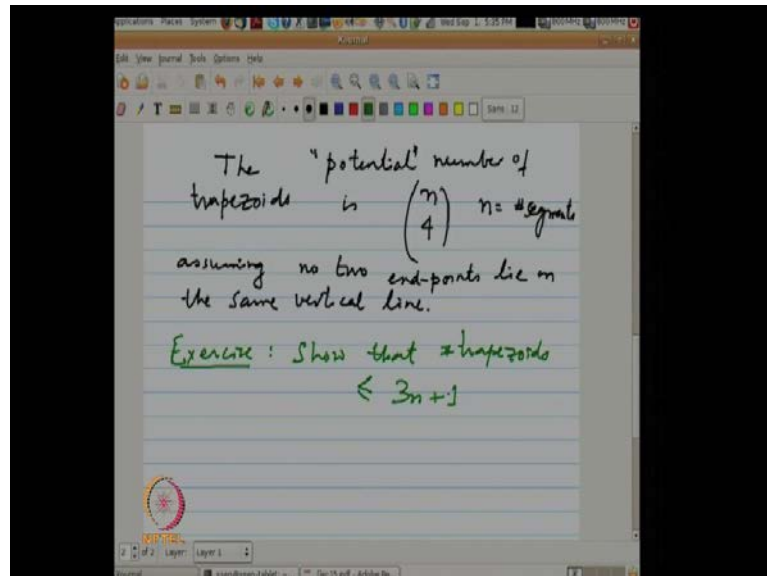 Applications Places System Wed Sep 1, 5:35 PM 800 MHz 800 MHz
Xournal
Edit View Journal Tools Options Help
Sans 12
The "potential" number of
trapezoids is (n 4) n = #segments
assuming no two end-points lie on
the same vertical line.
Exercise : Show that #trapezoids
≤ 3n+1
NPTEL
2 of 2 Layer: Layer 1